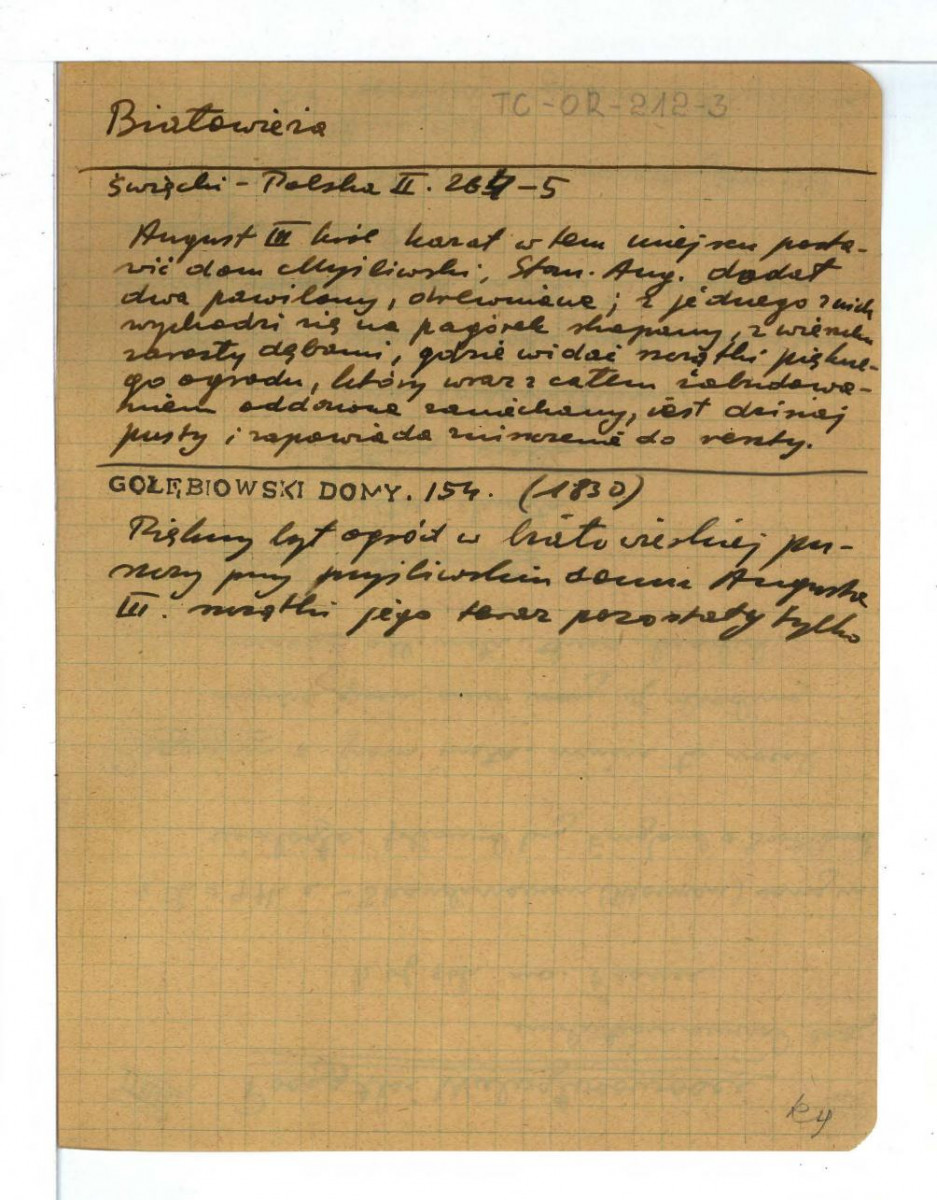 TC-OR-212-3
Białowieża
Święcki – Polska II. 264–5
August III król kazał w tem miejscu posta-
wić dom Myśliwski, Stan. Aug. dodał
dwa pawilony, drewniane; z jednego z nich
wychodzi się na pagórek skopany, z wierzchu
zarosły dębami, gdzie widać szczątki piękne-
go ogrodu, który wraz z całem zabudowa-
niem oddawna zaniechany, jest dzisiaj
pusty i zapowiada zniszczenie do reszty.
GOŁĘBIOWSKI DOMY. 154. (1830)
Piękny był ogród w białowieskiej pu-
szczy przy myśliwskim domu Augusta
III. szczątki jego teraz pozostały tylko